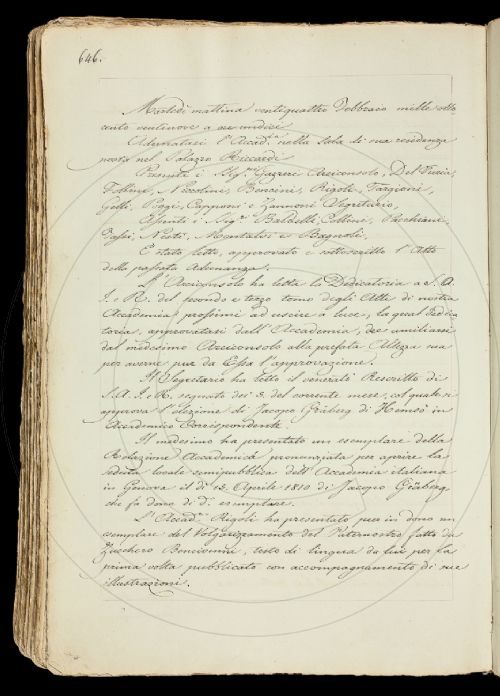 646.
Martedì mattina ventiquattro Febbraio mille otto
cento ventinove a ore undici
Adunatasi l'Accad.ia nella Sala di sua residenza
posta nel Palazzo Riccardi
Presenti i Sig.ri Gazzeri Arciconsolo, Del Furia,
Follini, Niccolini, Bencini, Rigoli, Targioni,
Gelli, Pagi, Capponi e Zannoni Segretario,
Assenti i Sig.ri Baldelli, Collini, Pacchiani
Tassi, Nesti, Montalvi e Bagnoli.
È stato letto, approvato e sottoscritto l'Atto
della passata Adunanza.
L'Arciconsolo ha letta la Dedicatoria a S. A.
I. e R. del secondo e terzo tomo degli Atti di nostra
Accademia prossimi ad uscire a luce, la qual Dedica
toria, approvatasi dall'Accademia, dee umiliarsi
dal medesimo Arciconsolo alla prefata Altezza sua
per averne pur da Essa l'approvazione.
Il Segretario ha letto il venerato Rescritto di
S. A. I. e R. segnato dei 3. del corrente mese, col quale si
approva l'elezione di Jacopo Gräberg di Hemsö in
Accademico Corrispondente.
Il medesimo ha presentato un esemplare della
Relazione Accademica pronunziata per aprire la
seduta locale semipubblica dell'Accademia italiana
in Genova il dì 13. Aprile 1810 di Jacopo Gräberg
che fa dono di d.o esemplare.
L'Accad.co Rigoli ha presentato pure in dono un
esemplare del Volgarizzamento del Paternostro fatto da
Zucchero Bencivenni, testo di lingua da lui per la
prima volta pubblicato con accompagnamento di sue
illustrazioni.